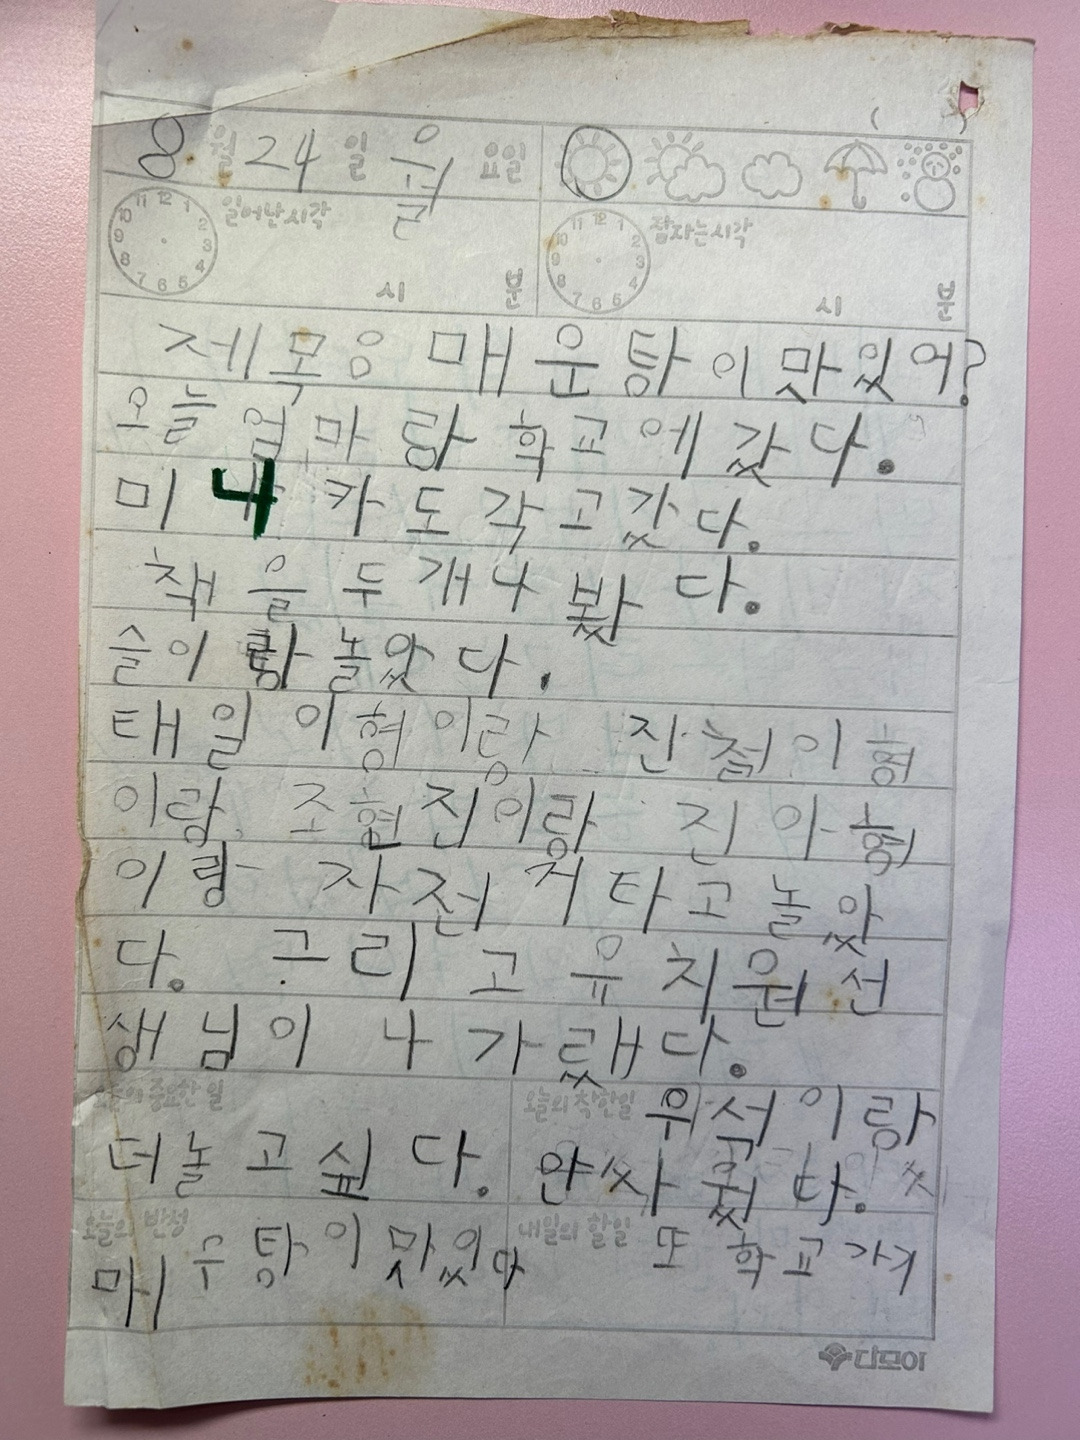 8 월 24 일 월 요일
일어난시각 잠자는시각
시 분 시 분
제목응 매운탕이맛있어?
오늘 엄마랑 학교에 갔다.
미나카도 각고갔다.
책을 두개나 봤다.
슬이랑놀았다.
태일이형이랑 진철이형
이랑 조현진이랑 진아형
이랑 자전거타고놀았
다. 그리고유치원선
생님이 나가랬다.
오늘의 중요한 일
더놀고싶다.
오늘의 착한일
위석이랑
안싸웠다.
오늘의 반성
매우탕이맛있다
내일의 할일
또 학교가기
디모이